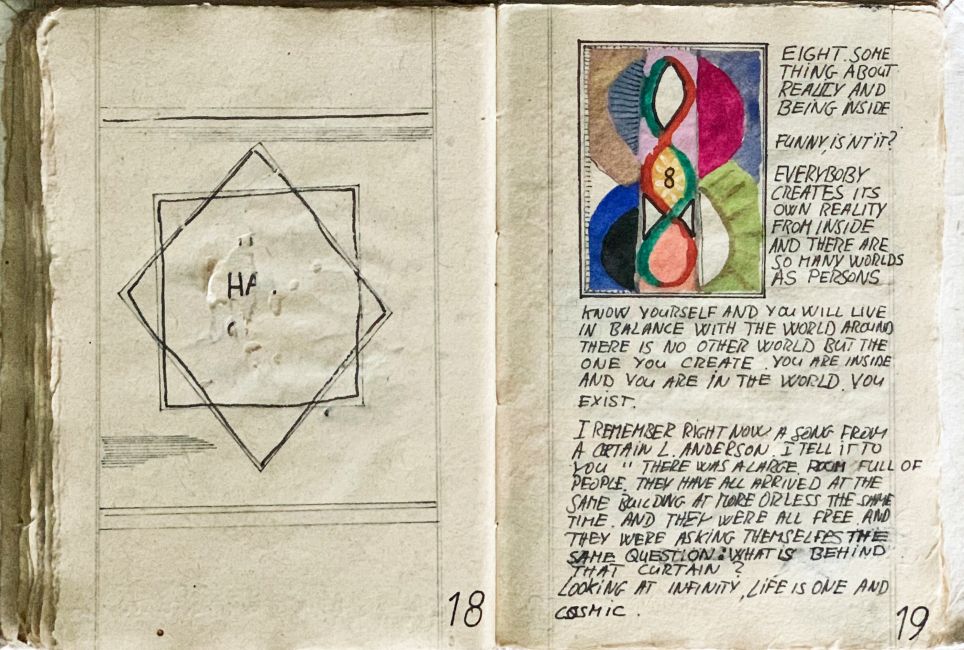 HA.
18
8
EIGHT. SOME
THING ABOUT
REALITY AND
BEING INSIDE
FUNNY, ISN'T IT?
EVERYBOBY
CREATES ITS
OWN REALITY
FROM INSIDE
AND THERE ARE
SO MANY WORLDS
AS PERSONS
KNOW YOURSELF AND YOU WILL LIVE
IN BALANCE WITH THE WORLD AROUND
THERE IS NO OTHER WORLD BUT THE
ONE YOU CREATE. YOU ARE INSIDE
AND YOU ARE IN THE WORLD. YOU
EXIST.
I REMEMBER RIGHT NOW A SONG FROM
A CERTAIN L. ANDERSON. I TELL IT TO
YOU " THERE WAS A LARGE ROOM FULL OF
PEOPLE. THEY HAVE ALL ARRIVED AT THE
SAME BUILDING AT MORE OR LESS THE SAME
TIME. AND THEY WERE ALL FREE. AND
THEY WERE ASKING THEMSELFES THE
SAME QUESTION: WHAT IS BEHIND
THAT CURTAIN ?
LOOKING AT INFINITY, LIFE IS ONE AND
COSMIC.
19